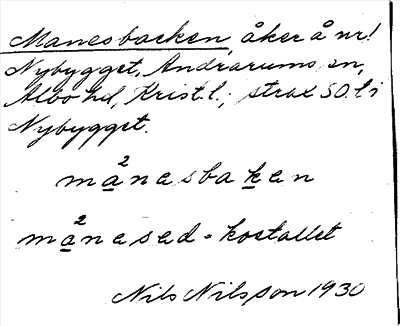 Manesbacken, åker å nr 1
Nybygget, Andrarums sn,
Albo hd, Krist. l.; strax S O. l i
Nybygget.
2
månesbaken
2
månesad-kostallet
Nils Nilsson 1930